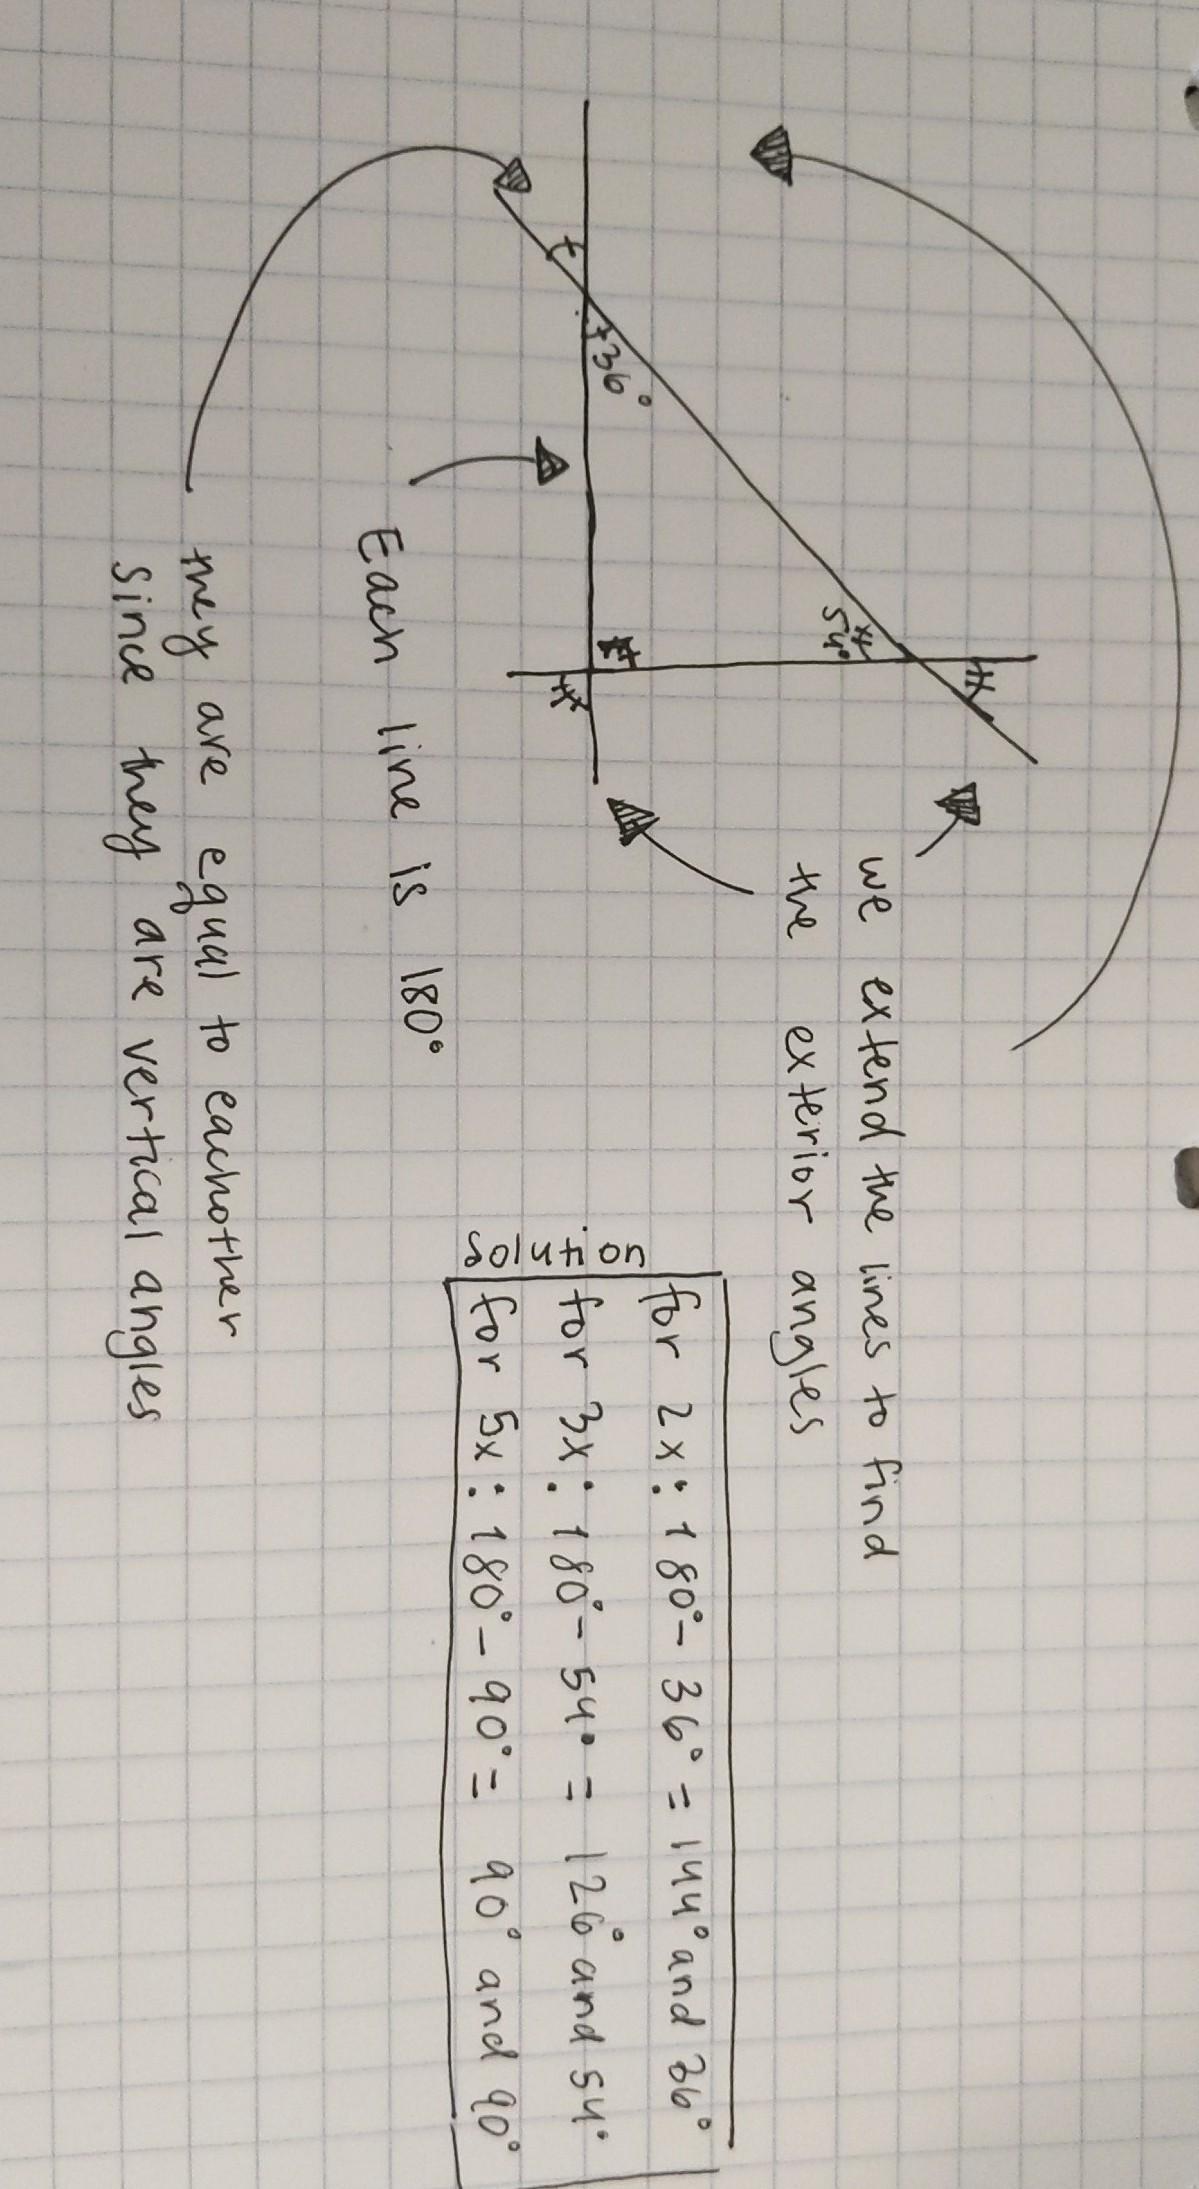 we extend the lines to find
the exterior angles
36°
54°
Each line is 180°
they are equal to eachother
since they are vertical angles
solution
for 2x: 180° - 36° = 144° and 36°
for 3x: 180° - 54° = 126° and 54°
for 5x: 180° - 90° = 90° and 90°